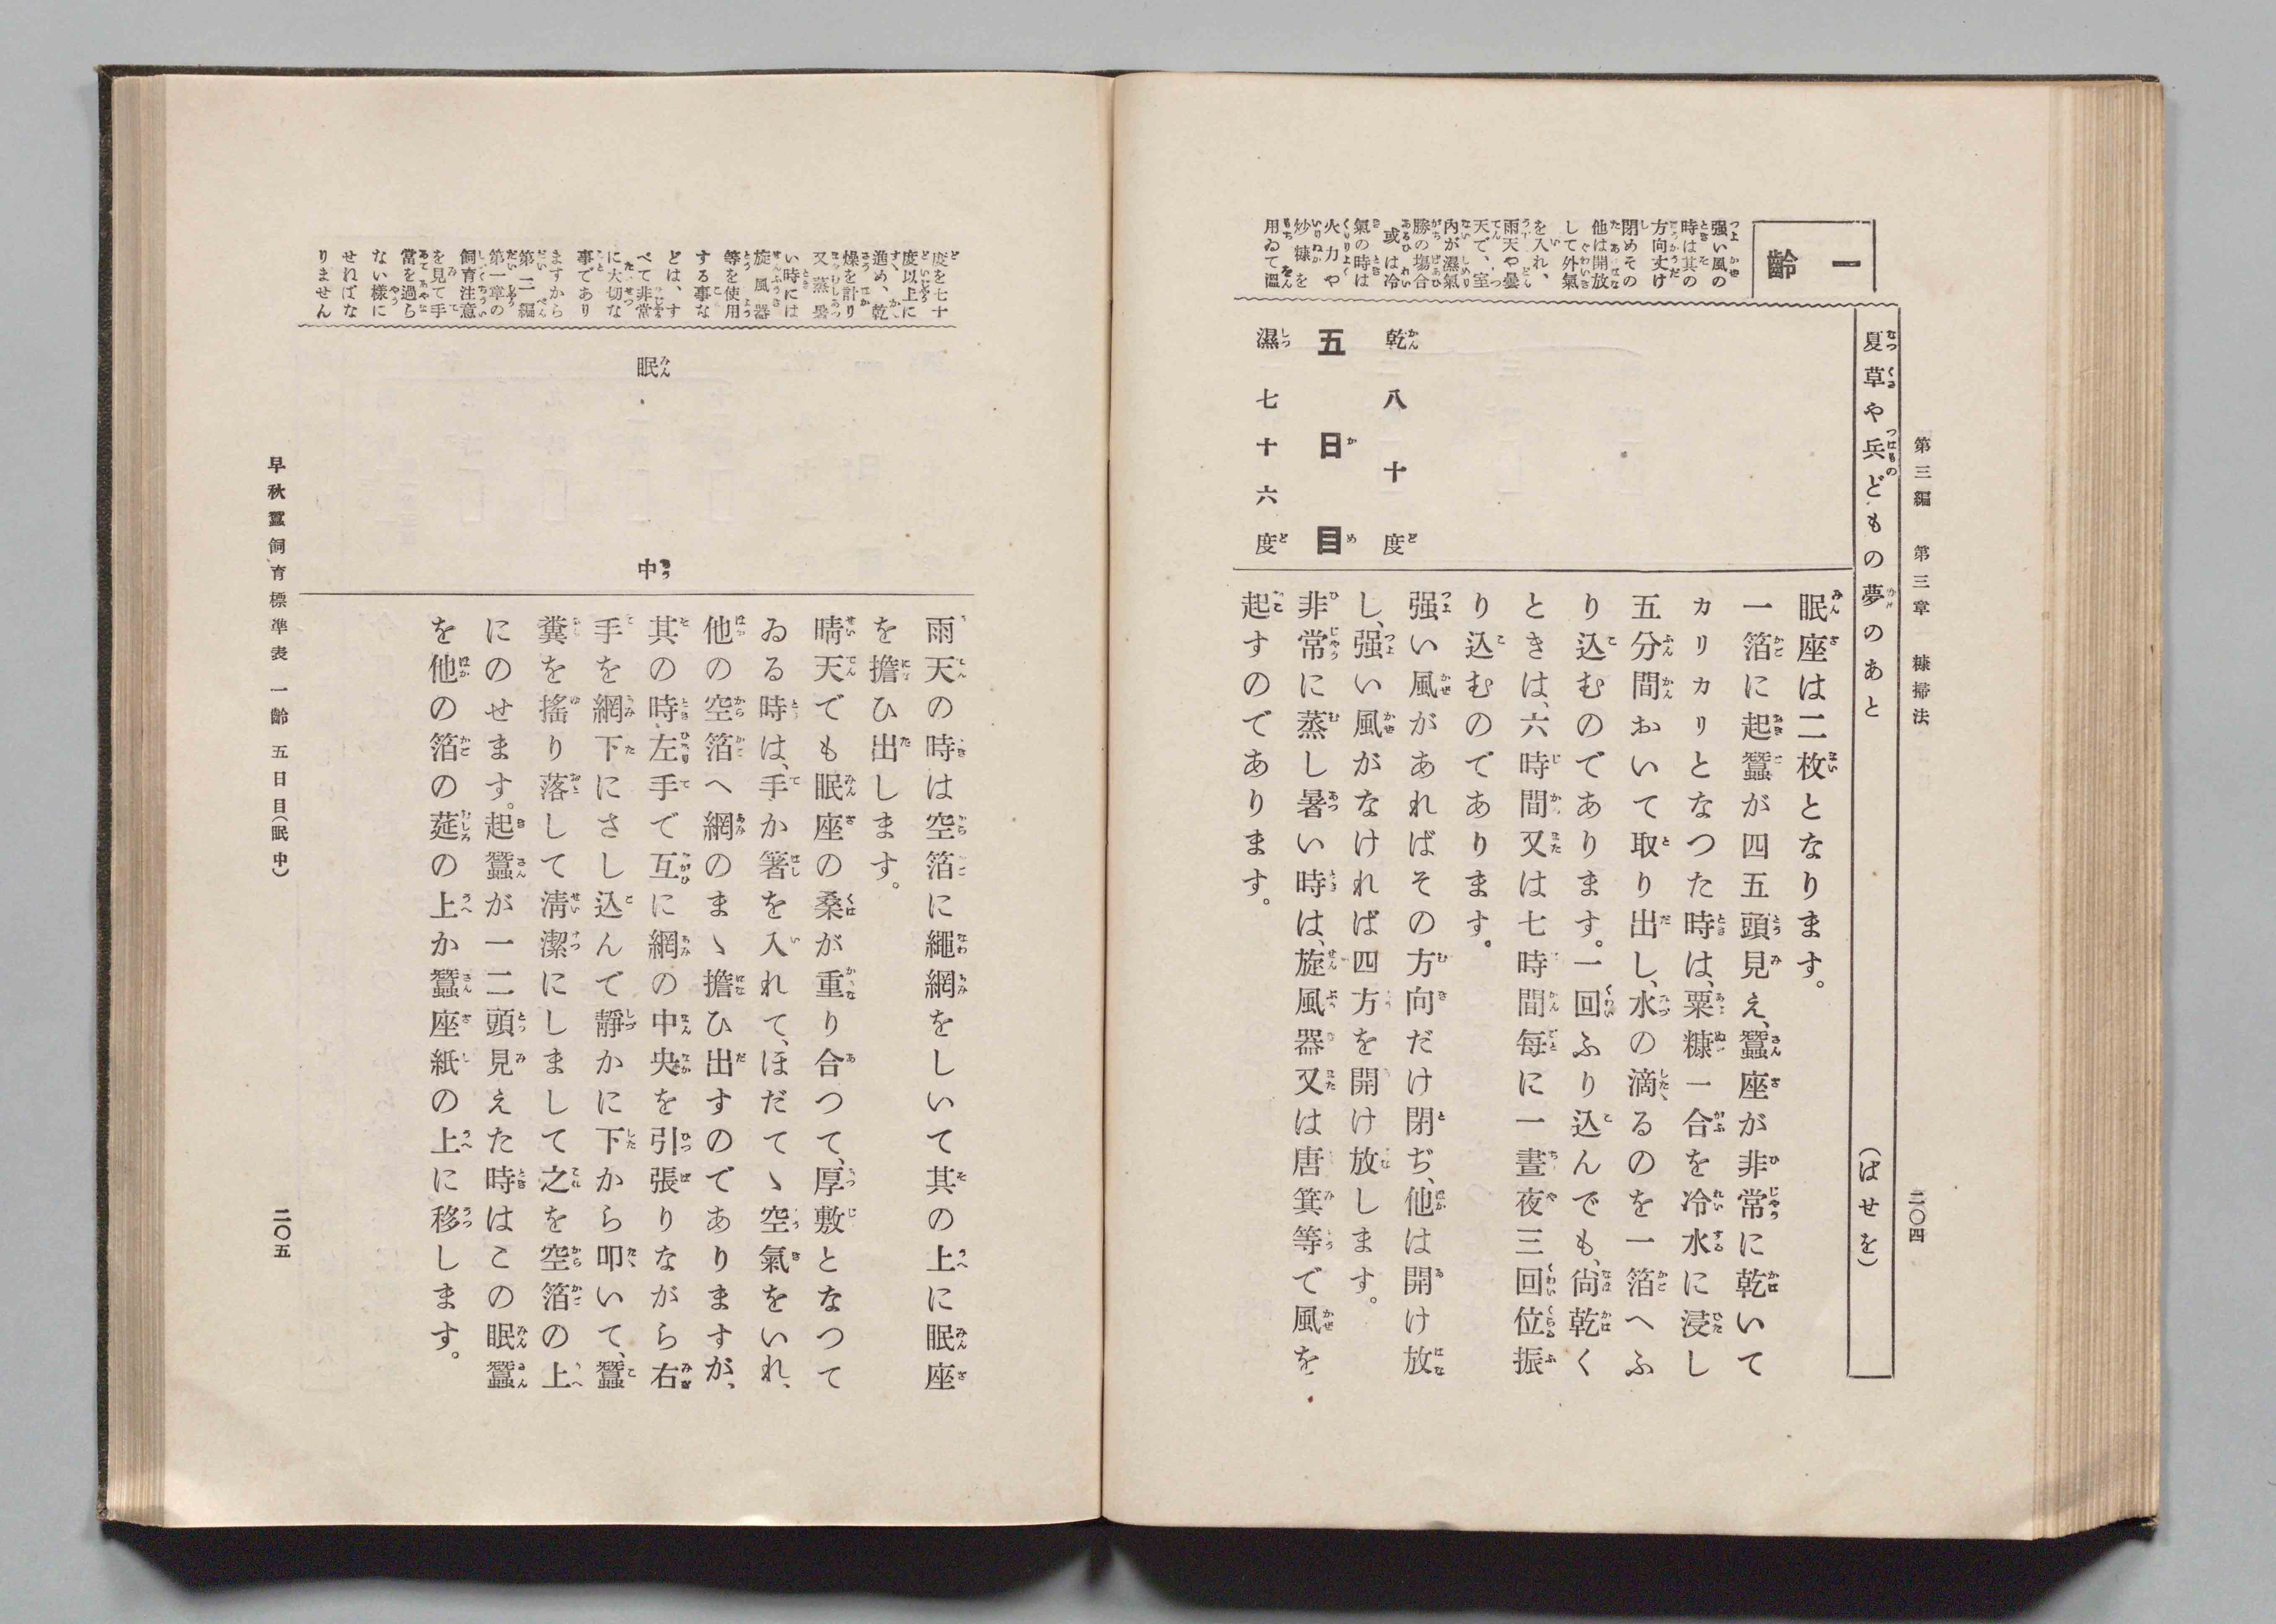 第三編　第三章　糠掃法
二〇四
夏草や兵どもの夢のあと　（ばせを）
一齡
强い風の
時は其の
方向丈け
閉めその
他は開放
して外氣
を入れ、
雨天や曇
天で、室
內が濕氣
勝の場合
或は冷
氣の時は
火力や
炒糠を
用ゐて溫
乾八十度
五日目
濕七十六度
眠座は二枚となります。
一箔に起蠶が四五頭見え、蠶座が非常に乾いて
カリカリとなつた時は、粟糠一合を冷水に浸し
五分間おいて取り出し、水の滴るのを一箔へふ
り込むのであります。一回ふり込んでも、尙乾く
ときは、六時間又は七時間每に一晝夜三回位振
り込むのであります。
强い風があればその方向だけ閉ぢ、他は開け放
し、强い風がなければ四方を開け放します。
非常に蒸し暑い時は、旋風器又は唐箕等で風を
起すのであります。
度を七十
度以上に
進め、乾
燥を計り
又蒸暑
い時には
旋風器
等を使用
する事な
どは、す
べて非常
に大切な
事であり
ますから
第二編
第一章の
飼育注意
を見て手
當を過ら
ない樣に
せればな
りません
眠中
雨天の時は空箔に繩網をしいて其の上に眠座
を擔ひ出します。
晴天でも眠座の桑が重り合つて、厚敷となつて
ゐる時は、手か箸を入れて、ほだてゝ空氣をいれ、
他の空箔へ網のまゝ擔ひ出すのでありますが、
其の時左手で互に網の中央を引張りながら右
手を網下にさし込んで靜かに下から叩いて、蠶
糞を搖り落して淸潔にしまして之を空箔の上
にのせます。起蠶が一二頭見えた時はこの眠蠶
を他の箔の莚の上か蠶座紙の上に移します。
早秋蠶飼育標準表　一齡　五日目（眠中）
二〇五